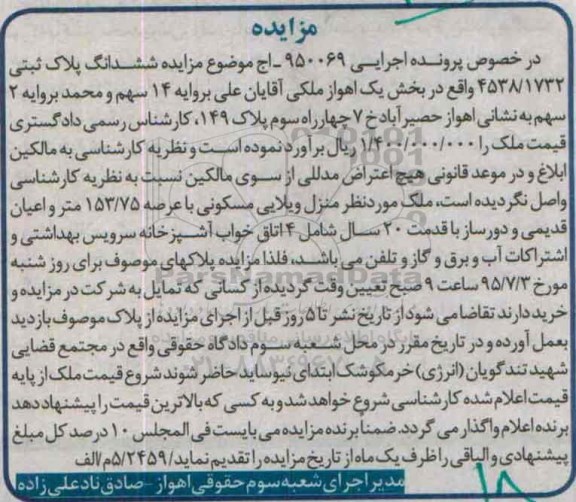 مزایده
در خصوص پرونده اجرایی ۹۵۰۰۶۹ ـ اج موضوع مزایده ششدانگ پلاک ثبتی
۴۵۳۸/۱۷۳۲ واقع در بخش یک اهواز ملکی آقایان علی بروایه ۱۴ سهم و محمد بروایه ۲
سهم به نشانی اهواز حصیرآباد خ ۷ چهارراه سوم پلاک ۱۴۹، کارشناس رسمی دادگستری
قیمت ملک را ۱/۴۰۰/۰۰۰/۰۰۰ ریال برآورد نموده است و نظریه کارشناسی به مالکین
ابلاغ و در موعد قانونی هیچ اعتراض مدللی از سوی مالکین نسبت به نظریه کارشناسی
واصل نگردیده است، ملک مورد نظر منزل ویلایی مسکونی با عرصه ۱۵۳/۷۵ متر و اعیان
قدیمی و دورساز با قدمت ۲۰ سال شامل ۴ اتاق خواب آشپزخانه سرویس بهداشتی و
اشتراکات آب و برق و گاز و تلفن می باشد، فلذا مزایده پلاکهای موصوف برای روز شنبه
مورخ ۹۵/۷/۳ ساعت ۹ صبح تعیین وقت گردیده از کسانی که تمایل به شرکت در مزایده و
خرید دارند تقاضا می شود از تاریخ نشر تا ۵ روز قبل از اجرای مزایده از پلاک موصوف بازدید
بعمل آورده و در تاریخ مقرر در محل شعبه سوم دادگاه حقوقی واقع در مجتمع قضایی
شهید تندگویان (انرژی) خرمکوشک ابتدای نیوساید حاضر شوند شروع قیمت ملک از پایه
قیمت اعلام شده کارشناسی شروع خواهد شد و به کسی که بالاترین قیمت را پیشنهاد دهد
برنده اعلام و واگذار می گردد. ضمنا برنده مزایده می بایست فی المجلس ۱۰ درصد کل مبلغ
پیشنهادی و الباقی را ظرف یک ماه از تاریخ مزایده را تقدیم نماید/۵/۲۴۵۹م/الف
مدیر اجرای شعبه سوم حقوقی اهواز - صادق نادعلی زاده
ParsNamadData
۱۸